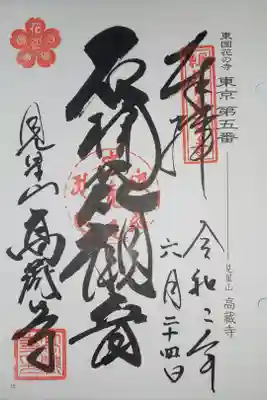 東国花の寺 東京 第五番
見星山 高蔵寺
奉拝
令和二年
六月二十四日
石楠花観音
見星山 高蔵寺